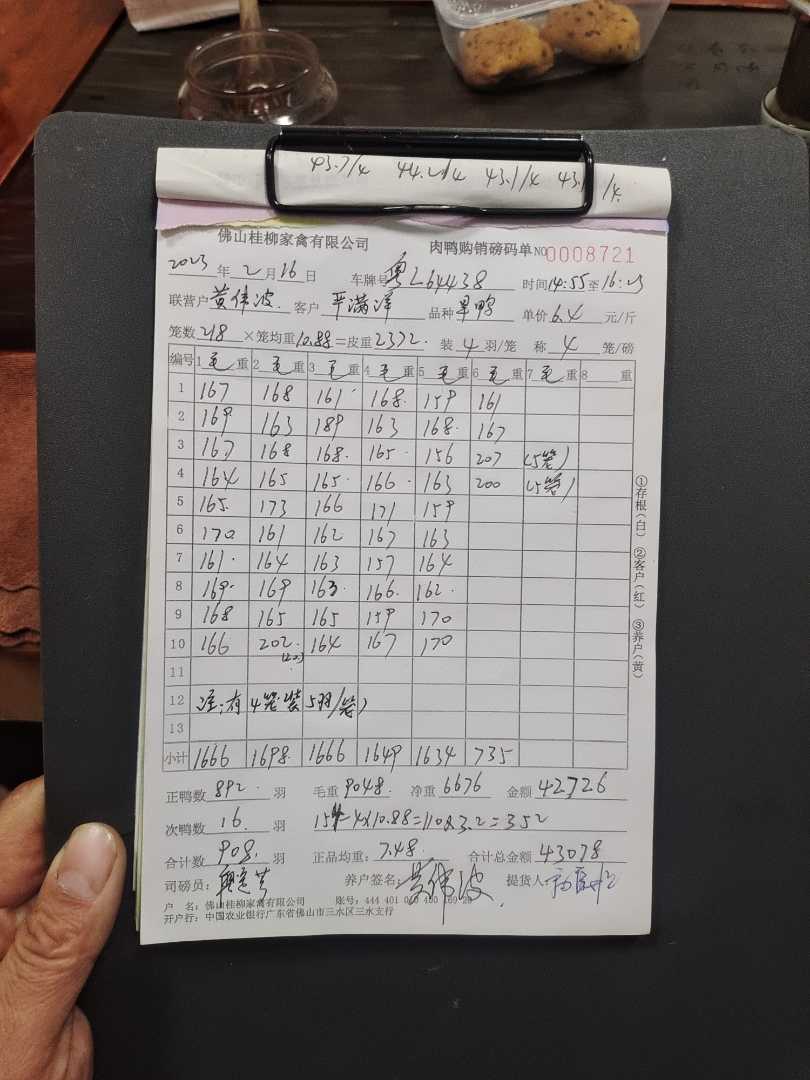 43.7/4 44.2/4 43.1/4 43. /4
佛山桂柳家禽有限公司 肉鸭购销磅码单 NO 0008721
2023年2月16日 车牌号 粤L64438 时间14:55至16:23
联营户 黄伟波 客户 严满洋 品种 旱鸭 单价 6.4 元/斤
笼数 218 ×笼均重10.88=皮重2372. 装 4 羽/笼 称 4 笼/磅
编号 1毛重 2毛重 3毛重 4毛重 5毛重 6毛重 7毛重 8 重
1 167 168 161 168 159 161
2 169 163 189 163 168 167
3 167 168 168 165 156 207 (5笼)
4 164 165 165 166 163 200 (5笼)
5 165 173 166 171 159
6 170 161 162 167 163
7 161 164 163 157 164
8 169 169 163 166 162
9 168 165 165 159 170
10 166 202 164 167 170
11
12 注:有4笼装5羽/笼)
13
小计 1666 1698 1666 1649 1634 735
正鸭数 892 羽 毛重 9048 净重 6676 金额 42726
次鸭数 16 羽 4×10.88=110×3.2=352
合计数 908 羽 正品均重: 7.48 合计总金额 43078
司磅员: 养户签名: 黄伟波 提货人:
户 名: 佛山桂柳家禽有限公司 账号: 444 401
开户行: 中国农业银行广东省佛山市三水区三水支行
①存根(白) ②客户(红) ③养户(黄)